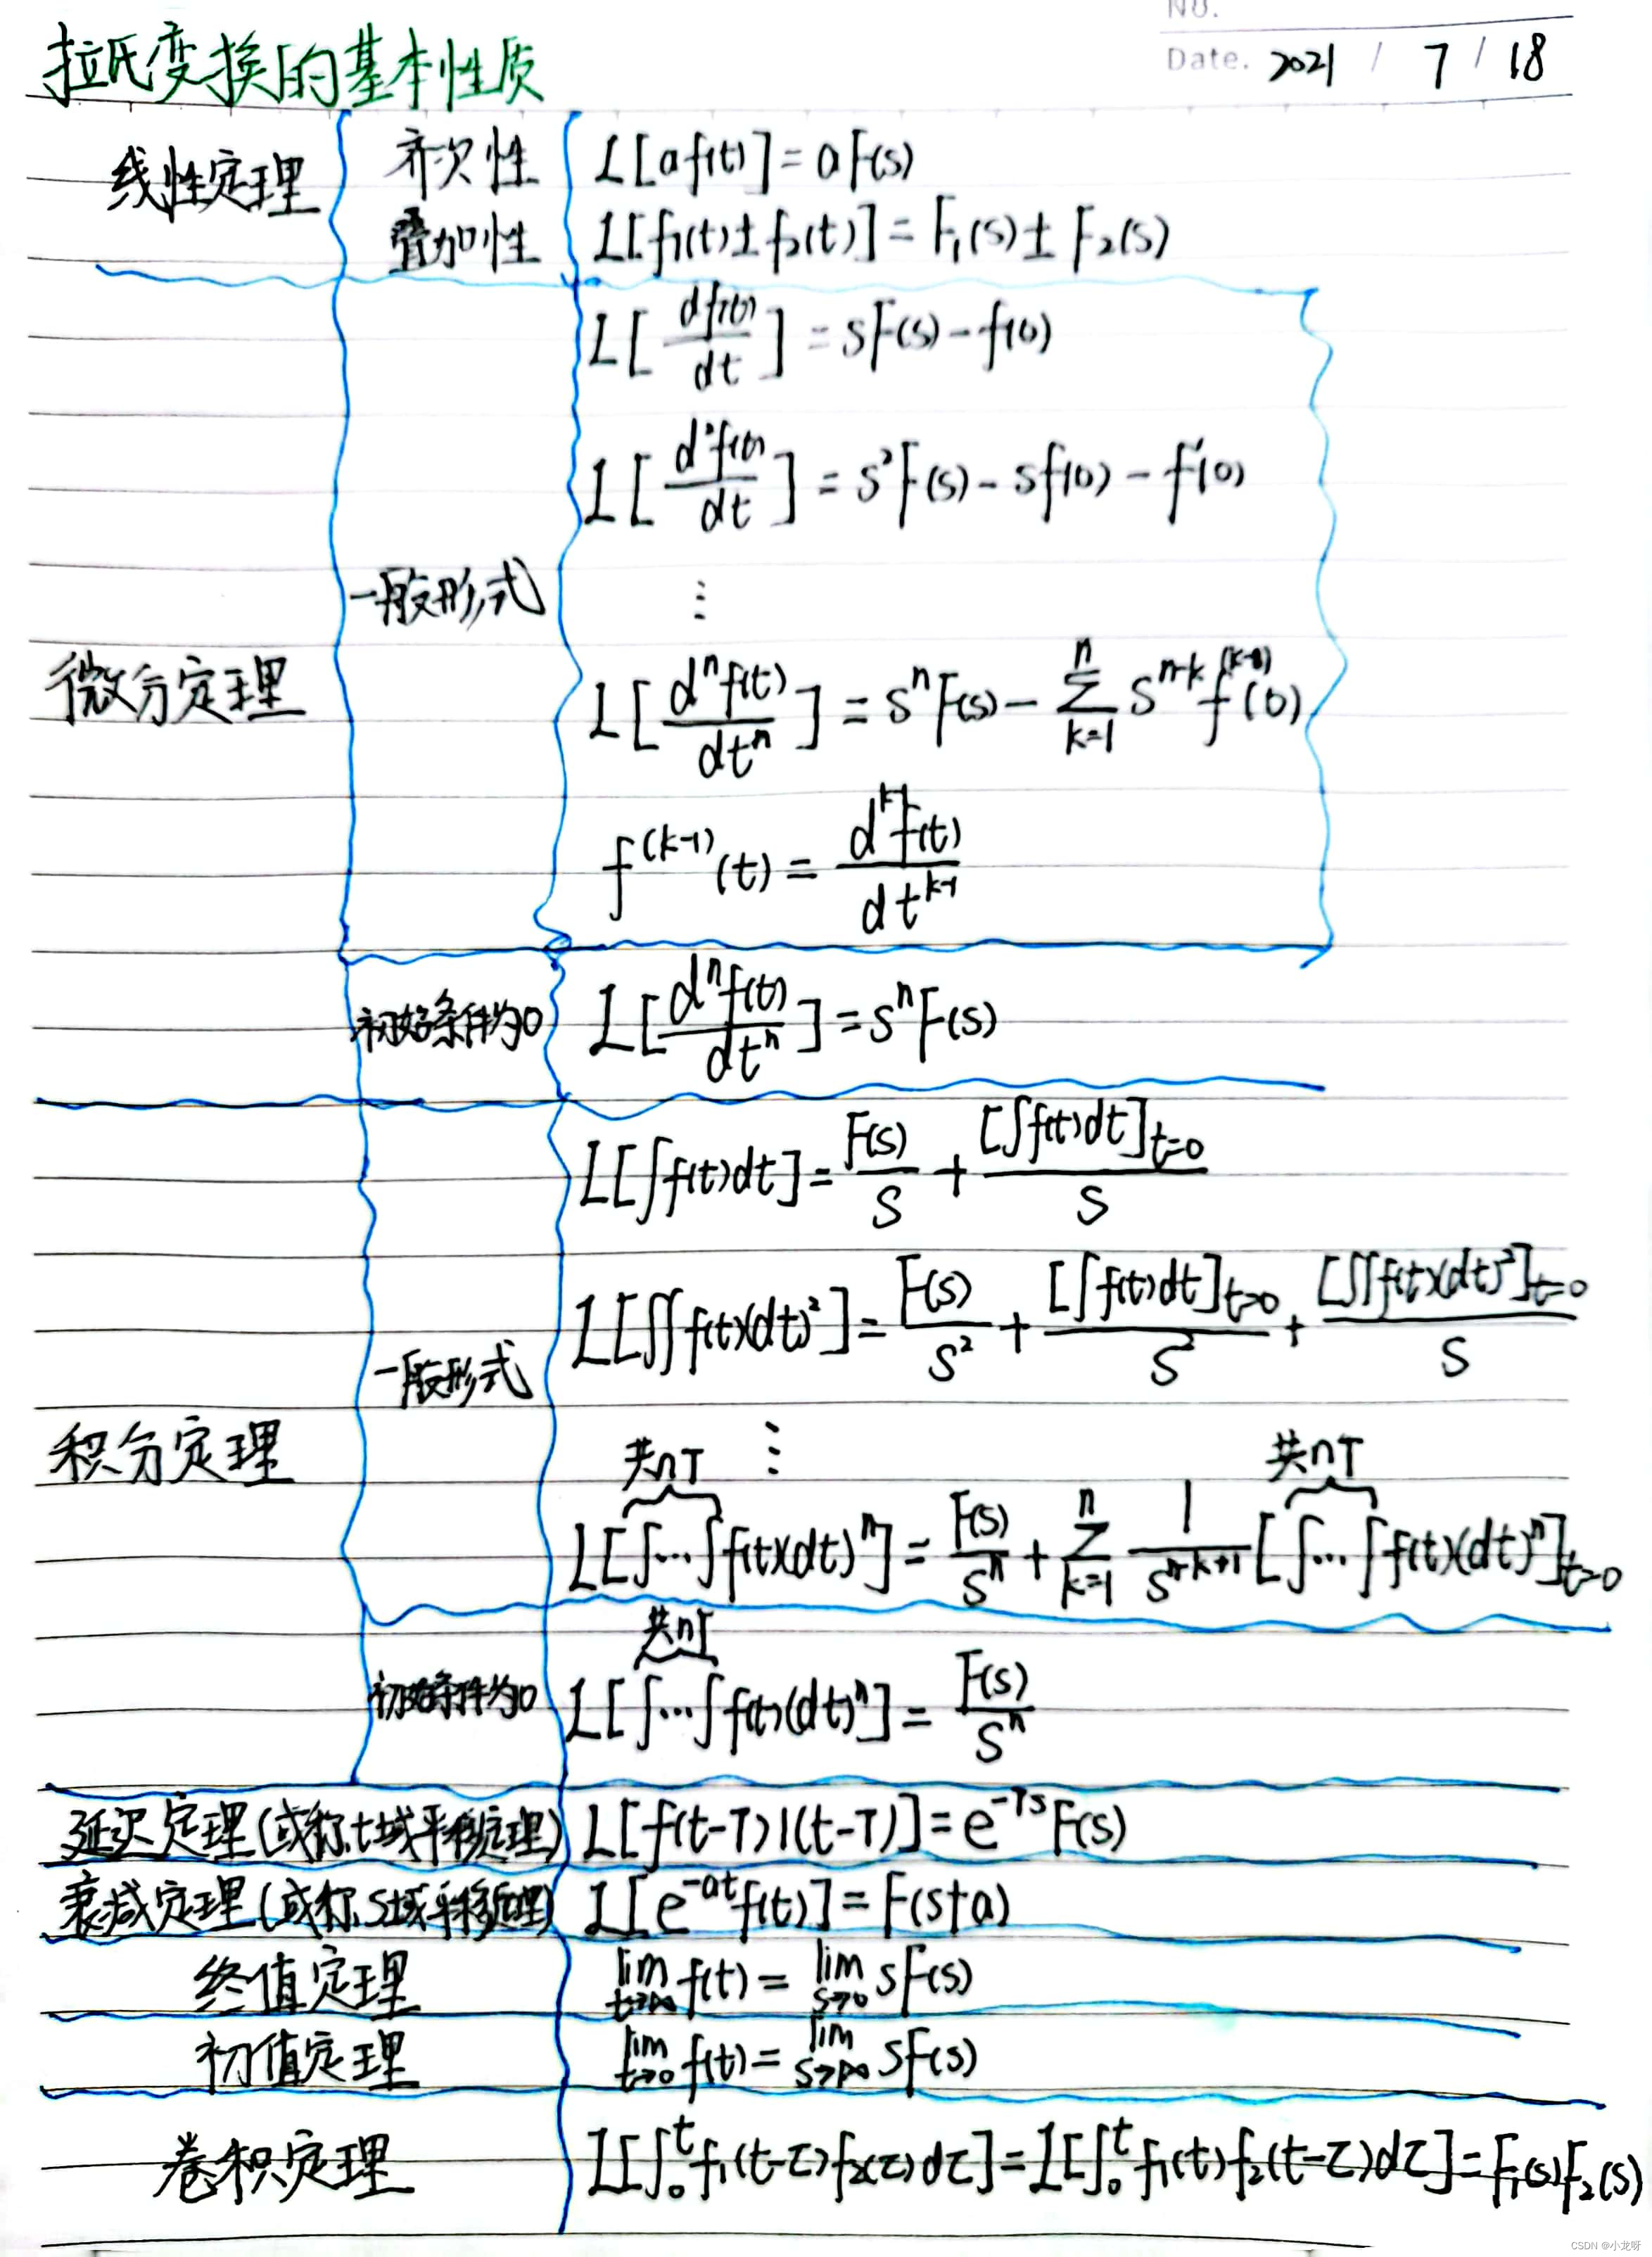 No.
拉氏变换的基本性质 Date. 2021 / 7 / 18
线性定理 齐次性 L[af(t)]=aF(s)
叠加性 L[f₁(t)±f₂(t)]=F₁(s)±F₂(s)
L[df(t)/dt]=sF(s)-f(0)
L[d²f(t)/dt]=s²F(s)-sf(0)-f'(0)
一般形式 ⋮
微分定理 L[dⁿf(t)/dtⁿ]=sⁿF(s)-∑_{k=1}^{n} s^{n-k}f^{(k-1)}(0)
f^{(k-1)}(t)=d^{k-1}f(t)/dt^{k-1}
初始条件为0 L[dⁿf(t)/dtⁿ]=sⁿF(s)
L[∫f(t)dt]=F(s)/s+[∫f(t)dt]_{t=0}/s
L[∬f(t)(dt)²]=F(s)/s²+[∫f(t)dt]_{t=0}/s²+[∬f(t)(dt)²]_{t=0}/s
一般形式
积分定理 共n个 ⋮ 共n个
L[∫…∫f(t)(dt)ⁿ]=F(s)/sⁿ+∑_{k=1}^{n} 1/s^{n-k+1}[∫…∫f(t)(dt)ⁿ]_{t=0}
共n个
初始条件为0 L[∫…∫f(t)(dt)ⁿ]=F(s)/sⁿ
延迟定理(或称t域平移定理) L[f(t-T)1(t-T)]=e^{-Ts}F(s)
衰减定理(或称s域平移定理) L[e^{-at}f(t)]=F(s+a)
终值定理 lim_{t→∞}f(t)=lim_{s→0}sF(s)
初值定理 lim_{t→0}f(t)=lim_{s→∞}sF(s)
卷积定理 L[∫₀ᵗf₁(t-τ)f₂(τ)dτ]=L[∫₀ᵗf₁(t)f₂(t-τ)dτ]=F₁(s)F₂(s)
CSDN @小龙呀